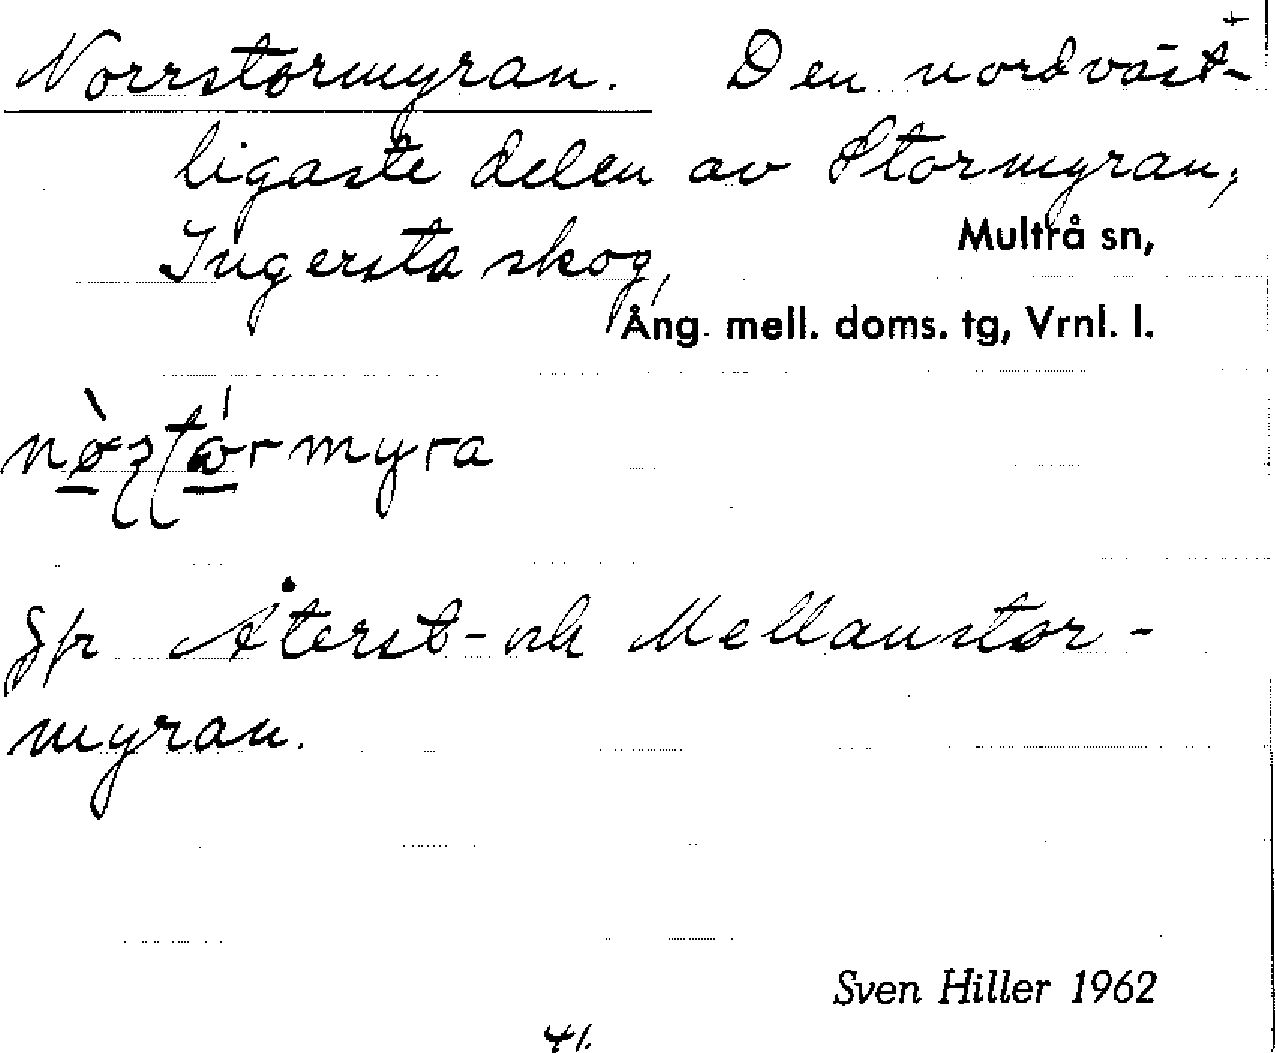 Norrstormyran. Den nordväst-
ligaste delen av Stormyran,
Ingersta skog, Multrå sn,
Ång. mell. doms. tg, Vrnl. l.
Jfr Återst- och Mellanstor-
myran.
Sven Hiller 1962
41.